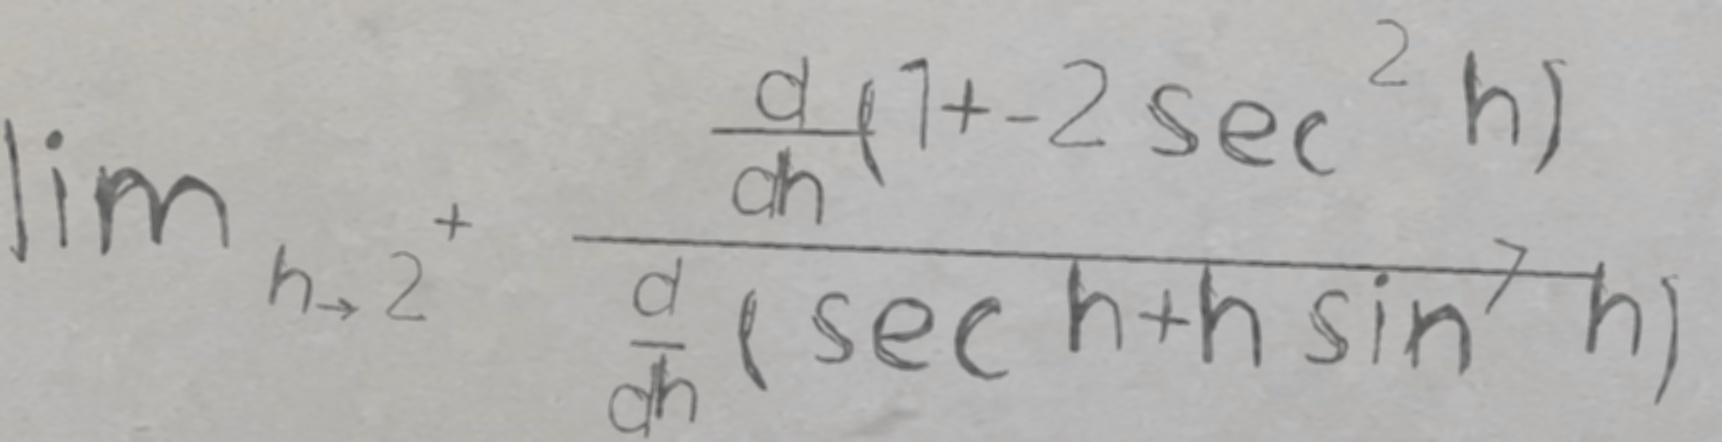 \lim_{h \to 2^+} \frac{\frac{d}{dh}(1+-2\sec^2 h)}{\frac{d}{dh}(\sec h+h\sin^7 h)}